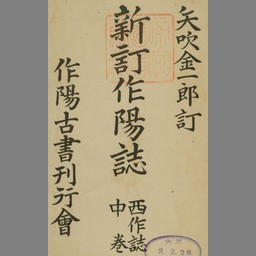 矢吹金一郎訂
新訂作陽誌
西作誌
中巻
作陽古書刊行會
3.2.28